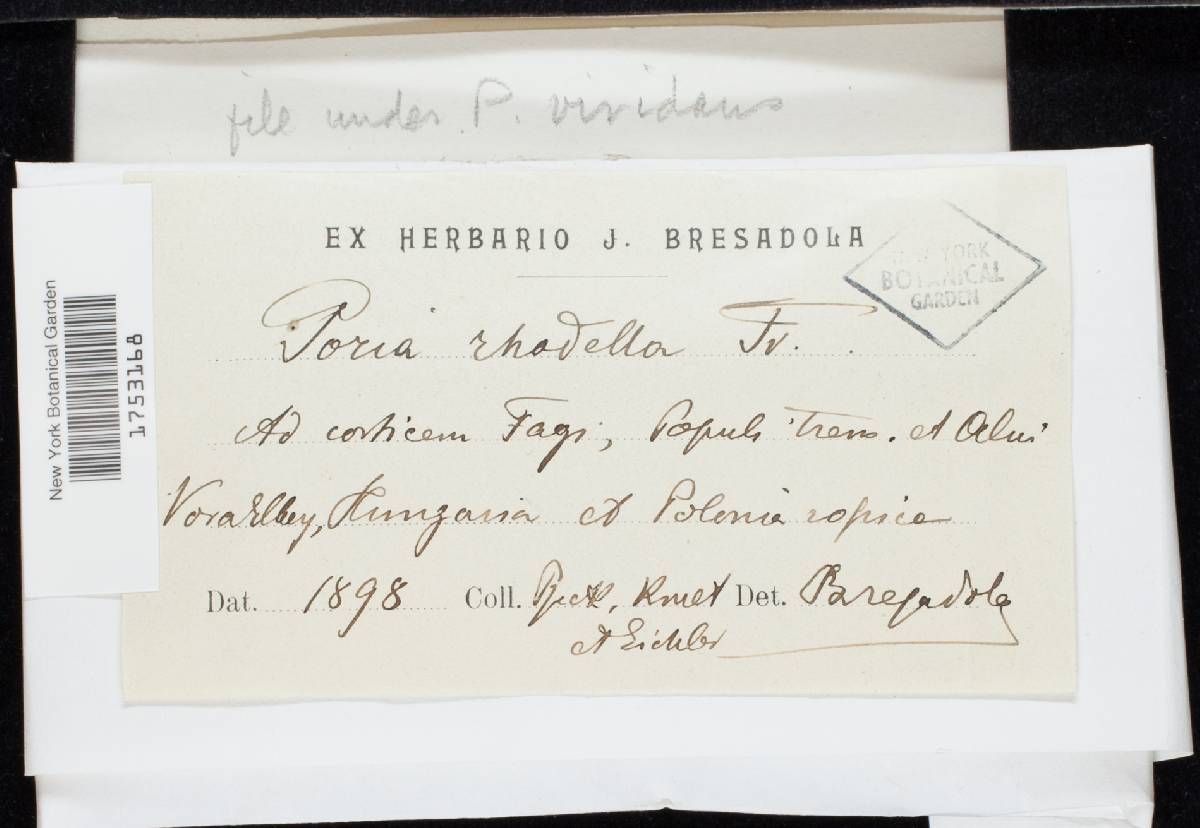 file under P. viridans
EX HERBARIO J. BRESADOLA
NEW YORK
BOTANICAL
GARDEN
Poria rhodella Fr.
Ad corticem Fagi, Populi trem. et Alni
Hungaria et Polonia
Dat. 1898 Coll. Kmet Det. Bresadola
et Eichler
New York Botanical Garden
1753168